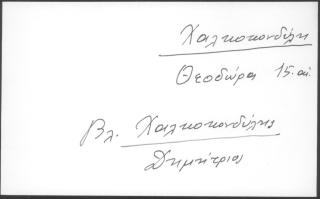 Χαλκοκονδύλη
Θεοδώρα 15. αι.
Βλ. Χαλκοκονδύλης
Δημήτριος